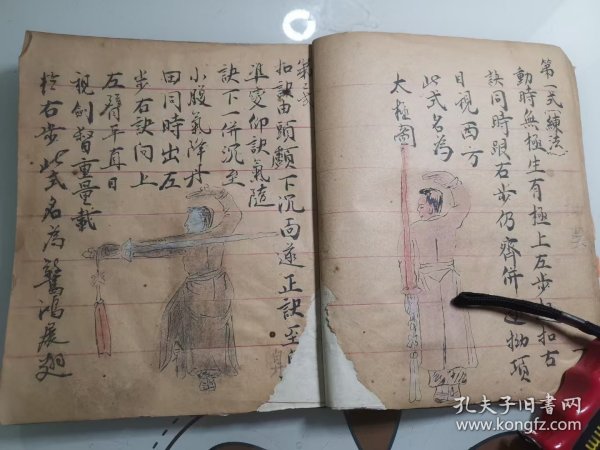 第一式(練法)
動時無極生有極上左步
扣右
訣同時跟右步仍齊併
拗項
目視西方
此式名為
太極圖
第二式
扣訣由頭顱下沉向遂正訣至
準變仰訣氣隨
訣下一併沉至
小腹氣降丹
田同時出左
步右訣向上
左臂平直目
視劍督重量載
於右步此式名為驚鴻展翅
孔夫子旧书网
kongfz.com